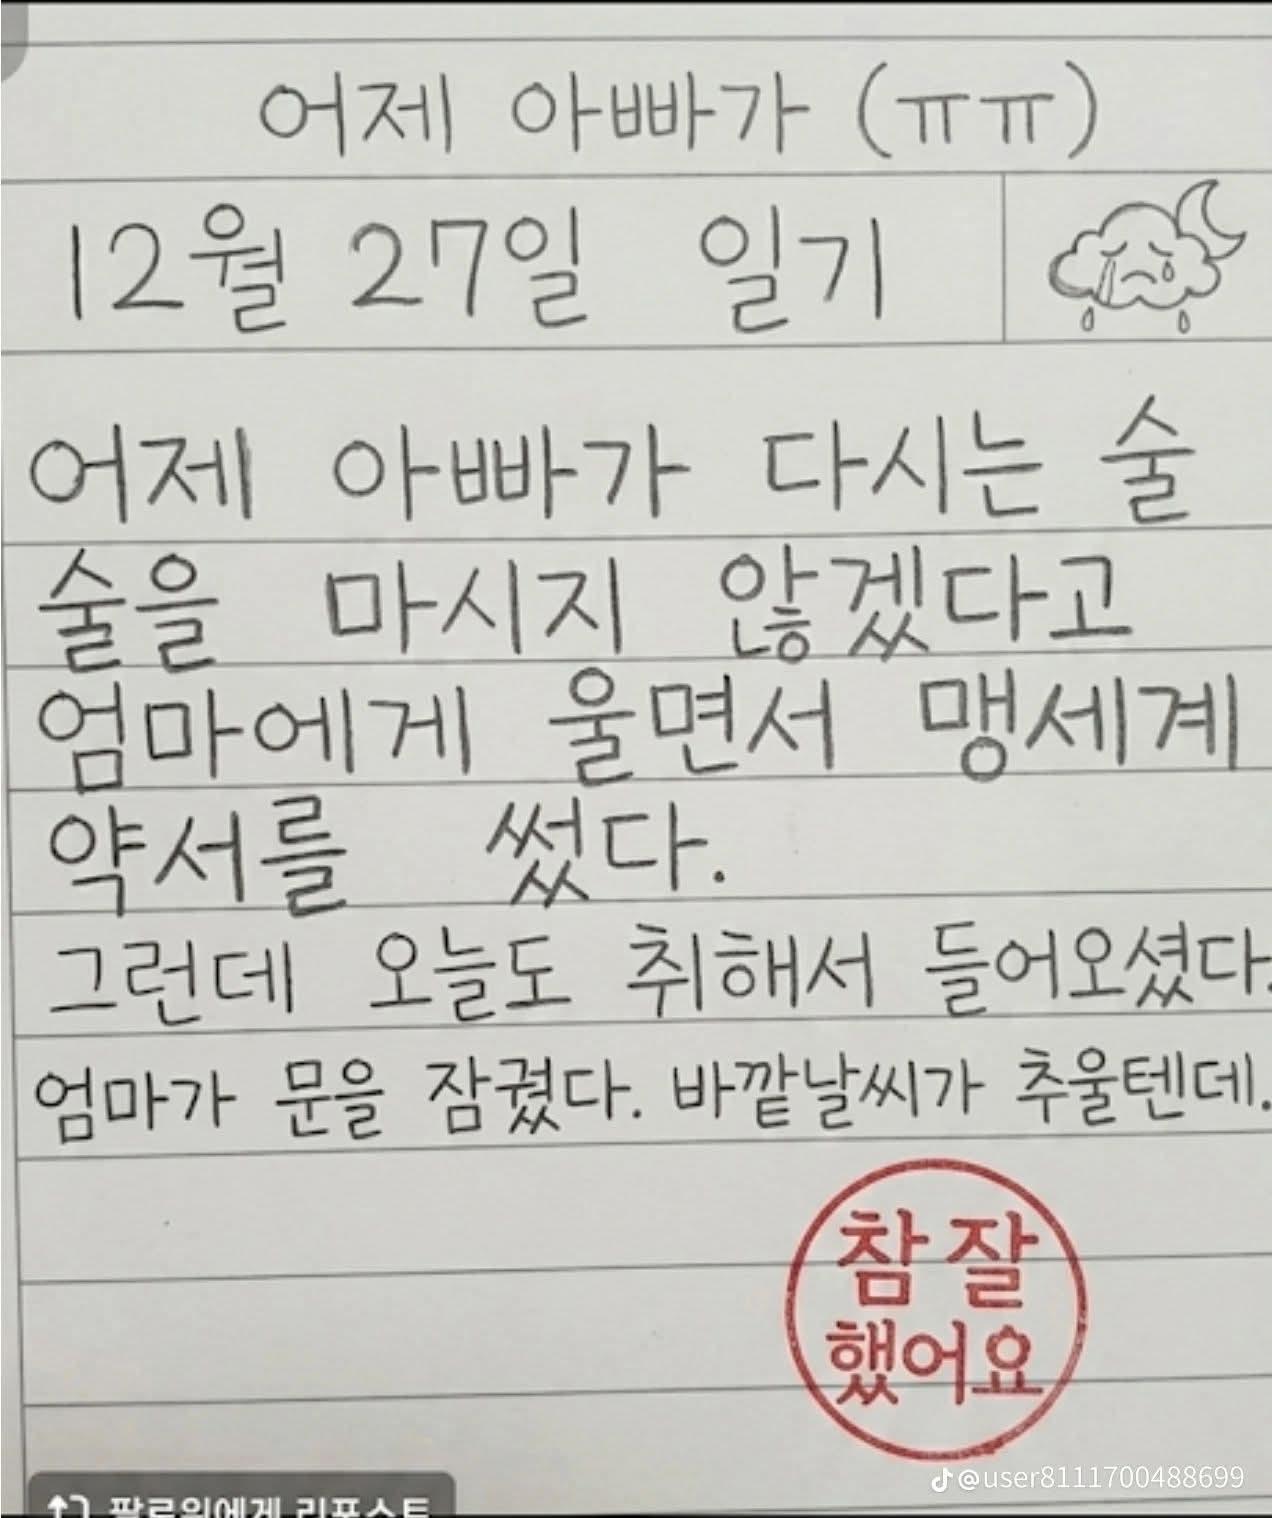 어제 아빠가 (ㅠㅠ)
12월 27일 일기
어제 아빠가 다시는 술
술을 마시지 않겠다고
엄마에게 울면서 맹세계
약서를 썼다.
그런데 오늘도 취해서 들어오셨다.
엄마가 문을 잠궜다. 바깥날씨가 추울텐데.
참 잘
했어요
@user8111700488699
팔로워에게 리포스트